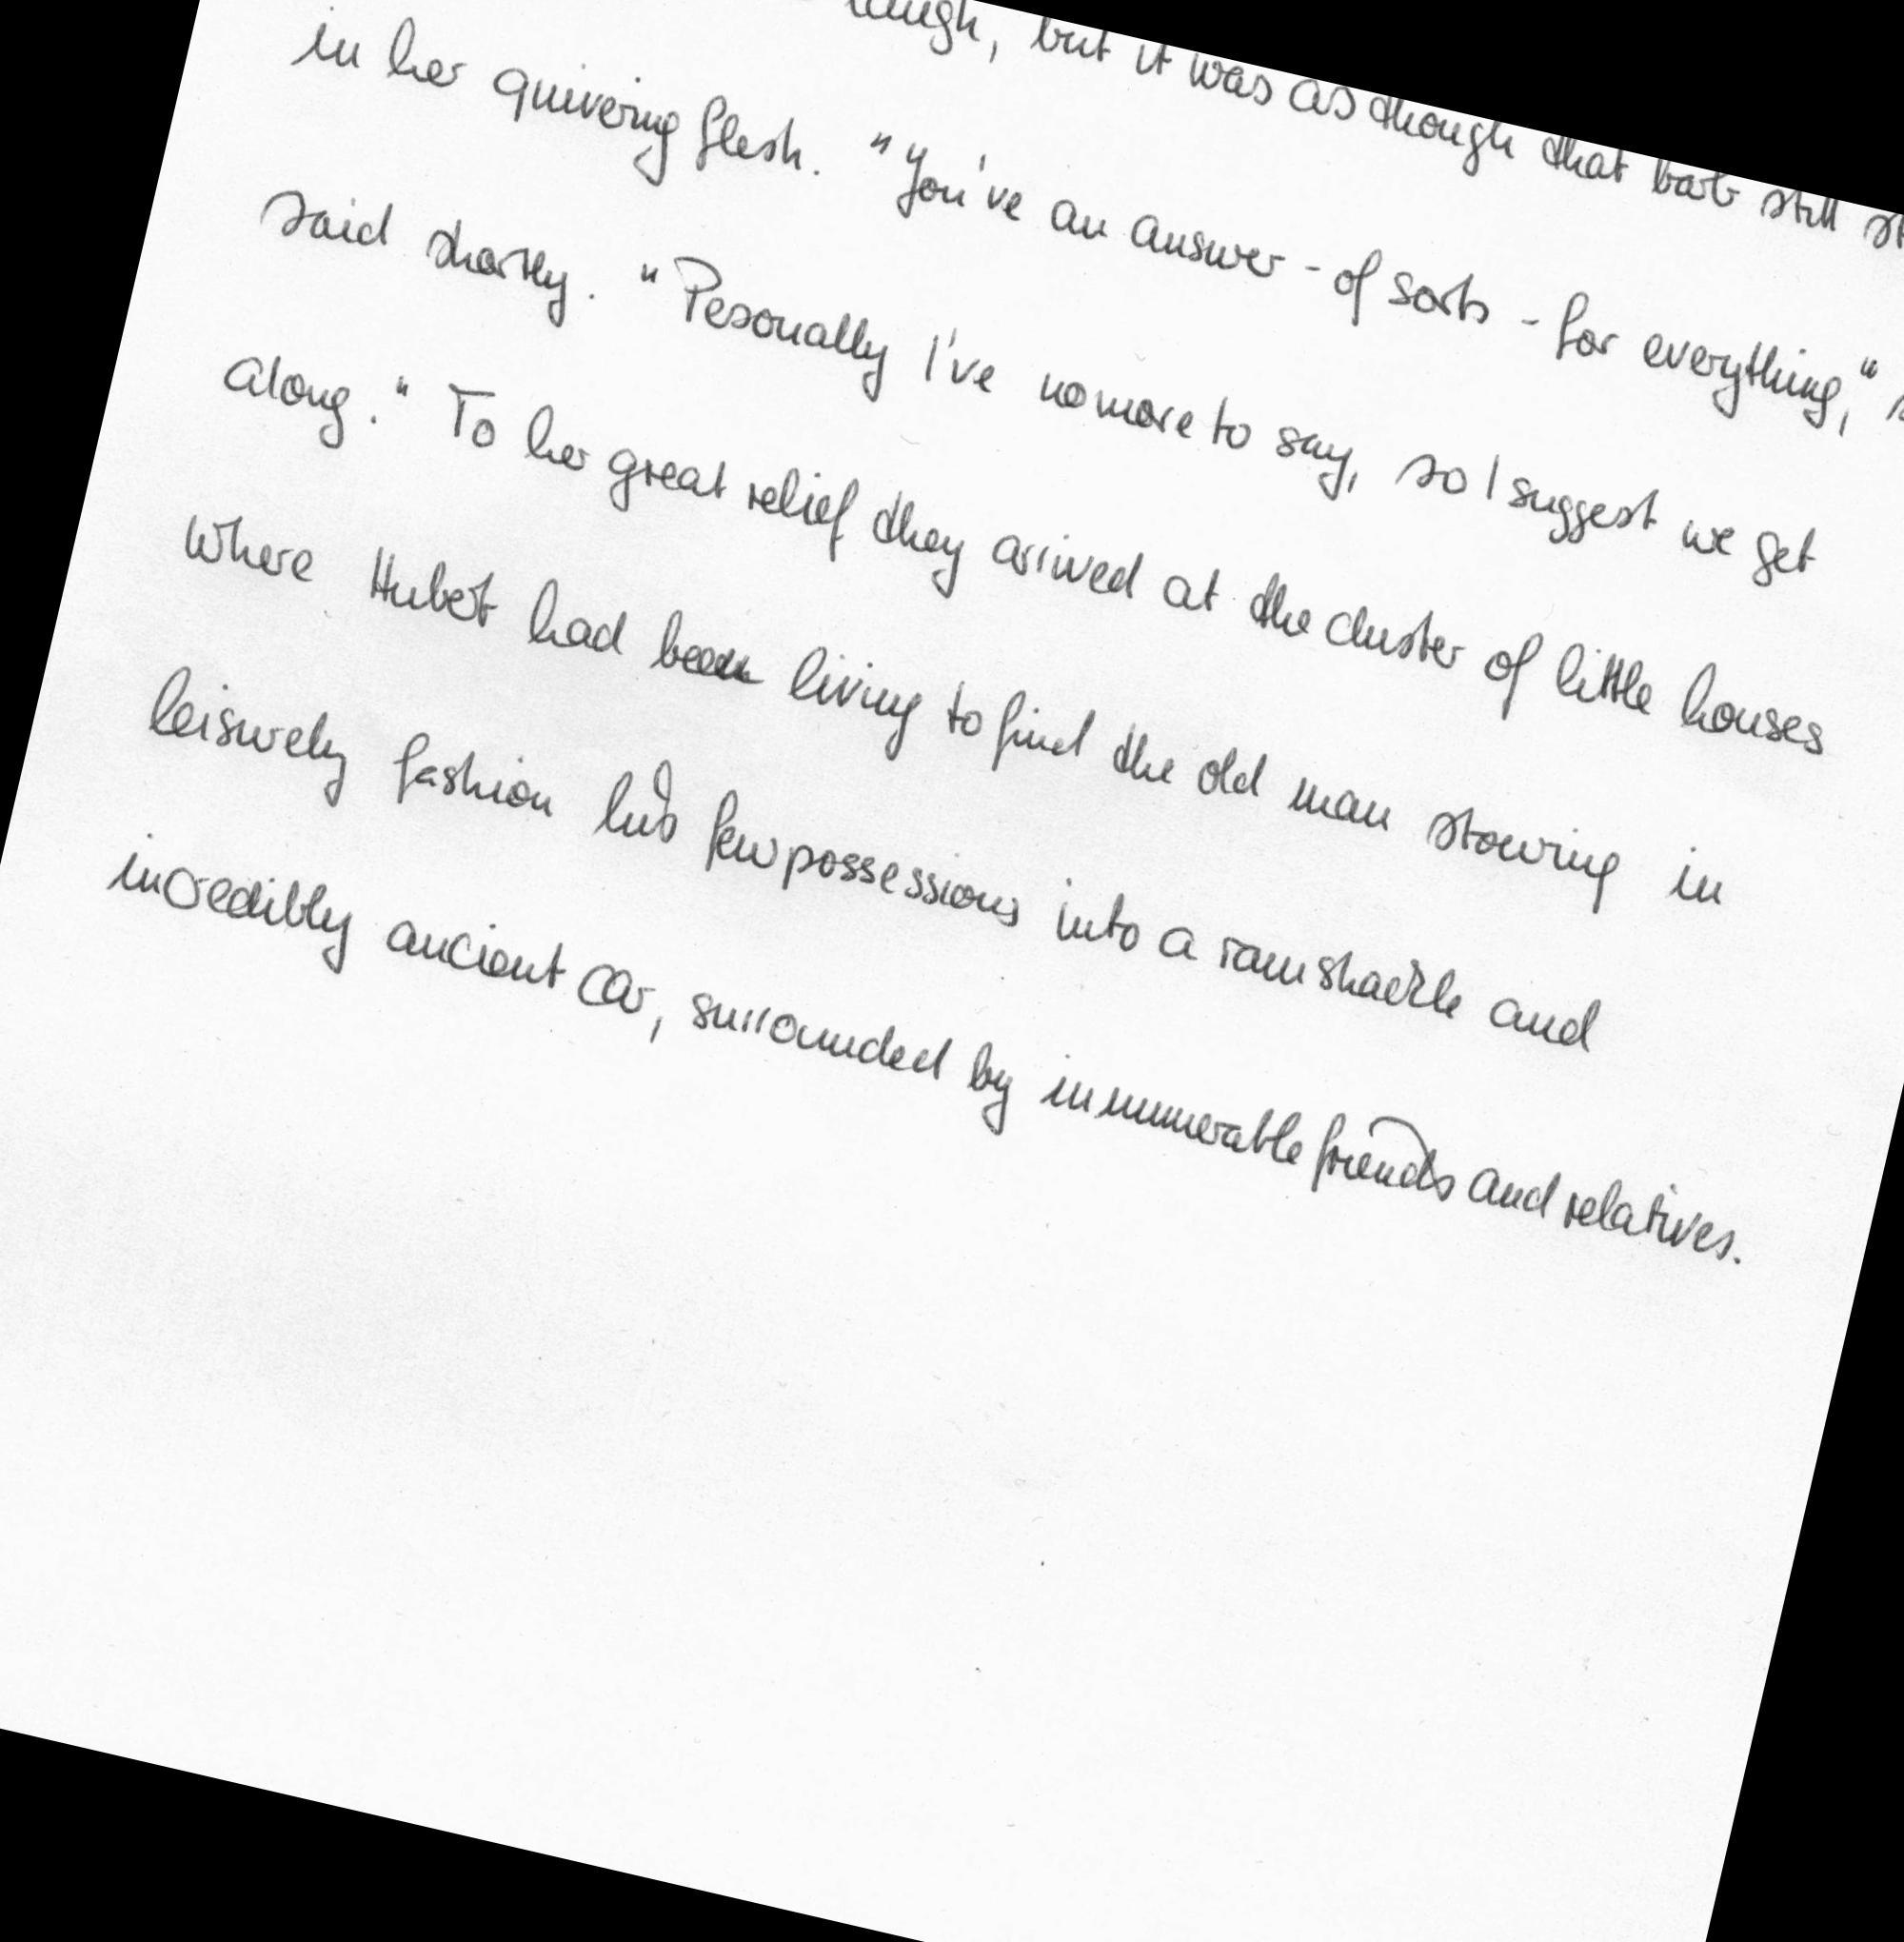 laugh, but it was as though that barb still
in her quivering flesh. "You've an answer - of sorts - for everything,"
said shortly. "Pesonally I've no more to say, so I suggest we get
along." To her great relief they arrived at the cluster of little houses
where Hubert had been living to find the old man stowing in
leisurely fashion his few possessions into a ramshackle and
incredibly ancient car, surrounded by innumerable friends and relatives.